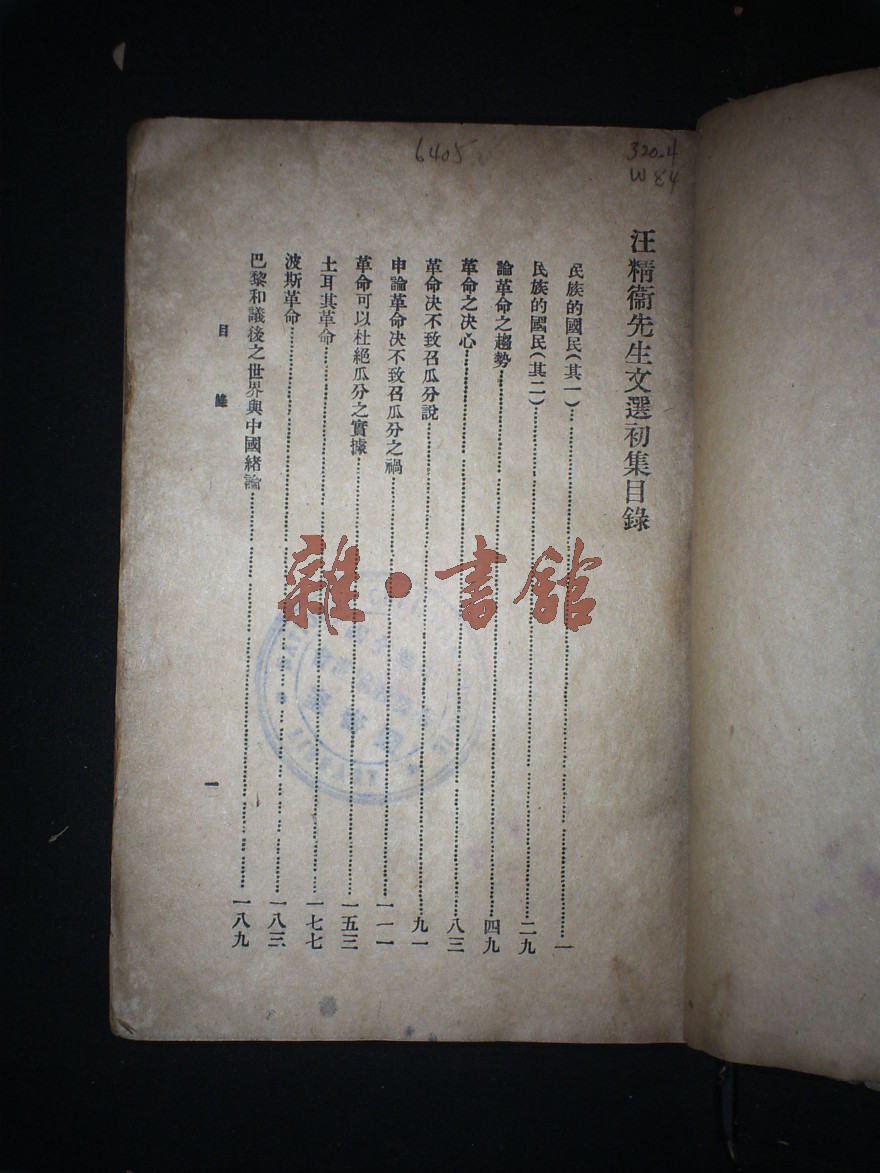 6405
320.4
W84
汪精衞先生文選初集目錄
民族的國民(其一)…………一
民族的國民(其二)…………二九
論革命之趨勢…………四九
革命之決心…………八三
革命決不致召瓜分說…………九一
申論革命決不致召瓜分之禍…………一一一
革命可以杜絕瓜分之實據…………一五三
土耳其革命…………一七七
波斯革命…………一八三
巴黎和議後之世界與中國緒論…………一八九
目錄
一
雜·書館